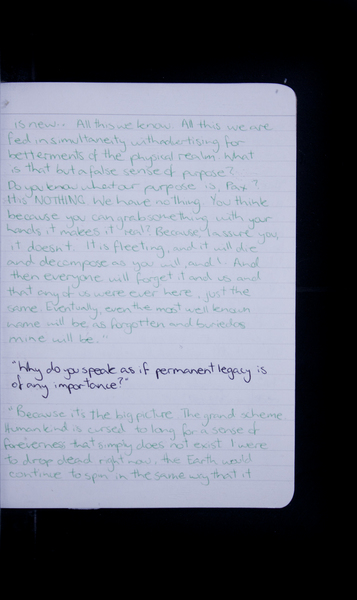 is new... All this we know. All this we are
fed in simultaneity with advertising for
betterments of the physical realm. What
is that but a false sense of purpose?
Do you know what our purpose is, Pax?
It is NOTHING. We have nothing. You think
because you can grab something with your
hands it makes it real? Because I assure you,
it doesn't. It is fleeting, and it will die
and decompose as you will, and I. And
then everyone will forget it and us and
that any of us were ever here, just the
same. Eventually, even the most well known
name will be as forgotten and buried as
mine will be."
"Why do you speak as if permanent legacy is
of any importance?"
"Because it's the big picture. The grand scheme.
Humankind is cursed to long for a sense of
foreverness that simply does not exist. I were
to drop dead right now, the Earth would
continue to spin in the same way that it